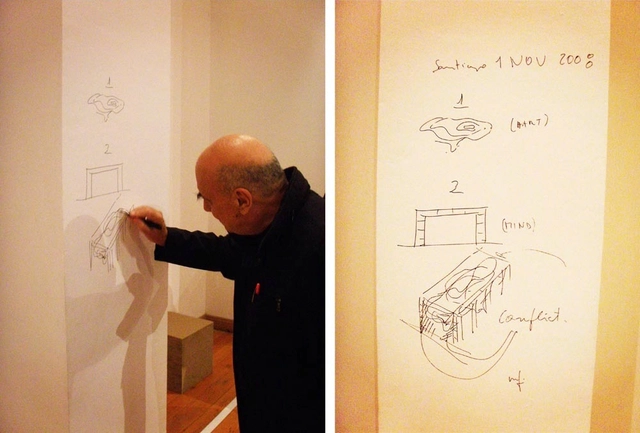 1
2
Santiago 1 NOV 2008
1
2
(MIND)
Conflict.